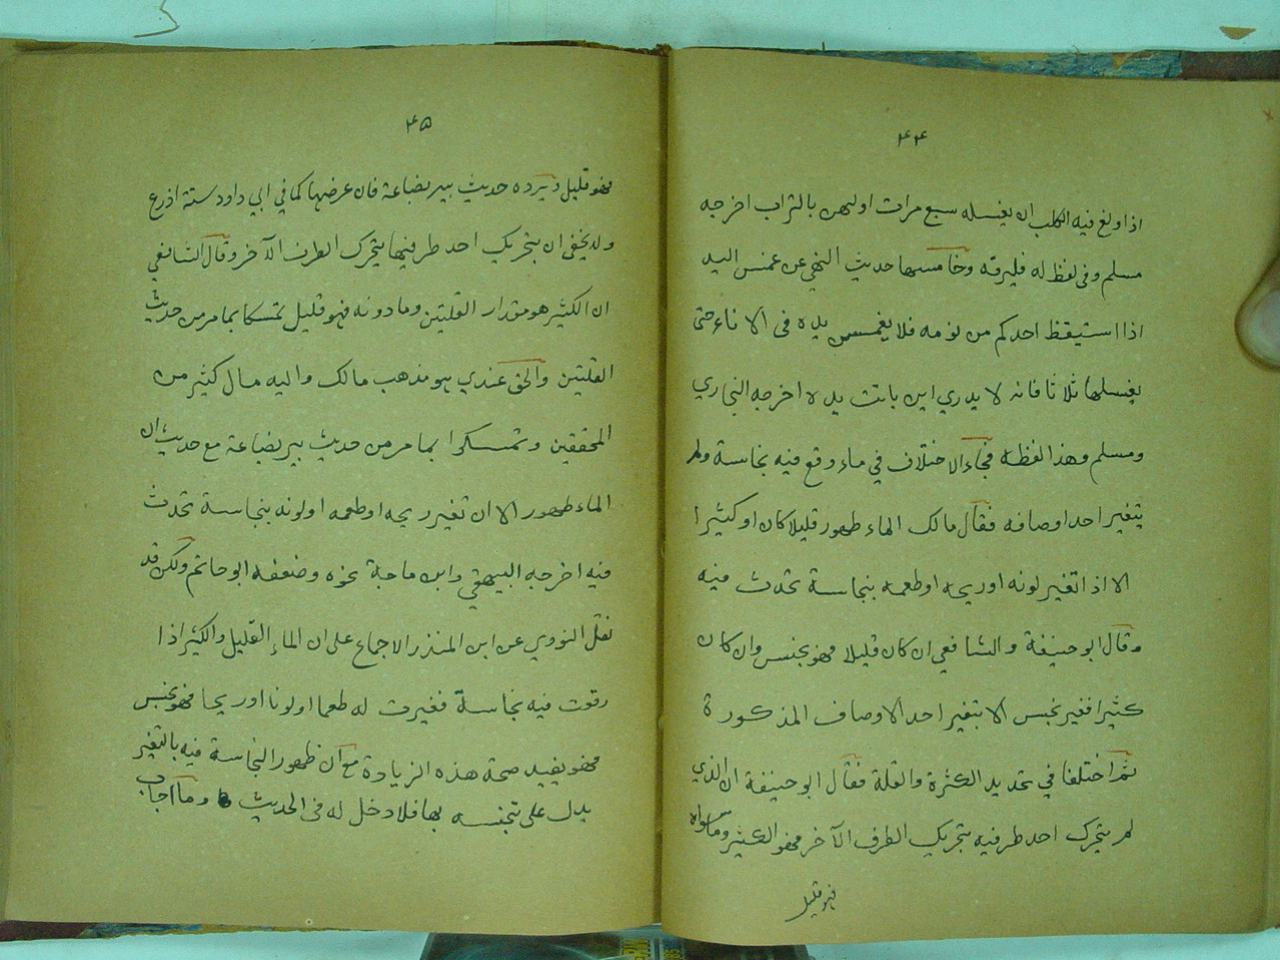 ۴۴
اذا ولغ فيه الكلب ان يغسله سبع مرات اولهن بالتراب اخرجه
مسلم وفي لفظ له فليرقه وخامسها حديث النهي عن غمس اليد
اذا استيقظ احدكم من نومه فلا يغمس يده في الاناء حتى
يغسلها ثلاثا فانه لا يدري اين باتت يده اخرجه البخاري
ومسلم وهذا لفظه فجاء الاختلاف في ماء وقع فيه نجاسة ولم
يتغير احد اوصافه فقال مالك الماء طهور قليلا كان او كثيرا
الا اذا تغير لونه او ريحه او طعمه بنجاسة تحدث فيه
وقال ابو حنيفة والشافعي ان كان قليلا فهو نجس وان كان
كثيرا فغير نجس الا بتغير احد الاوصاف المذكورة
ثم اختلفا في تحديد الكثرة والقلة فقال ابو حنيفة ان الذي
لم يتحرك احد طرفيه بتحريك الطرف الآخر فهو الكثير وما سواه
فهو قليل
۴۵
فهو قليل ويرده حديث بير بضاعة فان عرضها كما في ابي داود ستة اذرع
ولا يخفى ان بتحريك احد طرفيها يتحرك الطرف الآخر وقال الشافعي
ان الكثير هو مقدار القلتين وما دونه فهو قليل تمسكا بما مر من حديث
القلتين والحق عندي هو مذهب مالك واليه مال كثير من
المحققين وتمسكوا بما مر من حديث بير بضاعة مع حديث ان
الماء طهور الا ان تغير ريحه او طعمه او لونه بنجاسة تحدث
فيه اخرجه البيهقي وابن ماجة نحوه وضعفه ابو حاتم ولكن قد
نقل النووي عن ابن المنذر الاجماع على ان الماء القليل والكثير اذا
وقعت فيه نجاسة فغيرت له طعما او لونا او ريحا فهو نجس
فهو يفيد صحة هذه الزيادة مع ان ظهور النجاسة فيه بالتغير
يدل على تنجسه بها فلا دخل له في الحديث وما اجاب